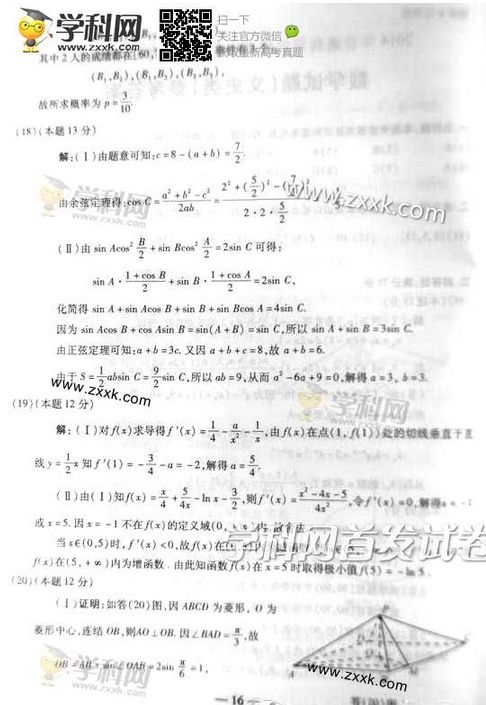 学科网
www.zxxk.com
扫一下
关注官方微信
获取最新高考真题
其中2人的成绩都在[60,
(B₁,B₂),(B₁,B₃),(B₂,B₃),
故所求概率为p=3/10.
(18)(本题13分)
解:(Ⅰ)由题意可知:c=8-(a+b)=7/2.
由余弦定理得:cos C=(a²+b²-c²)/2ab=(2²+(5/2)²-(7/2)²)/(2·2·5/2)
(Ⅱ)由 sin Acos² B/2+sin Bcos² A/2=2sin C 可得:
sin A·(1+cos B)/2+sin B·(1+cos A)/2=2sin C,
化简得 sin A+sin Acos B+sin B+sin Bcos A=4sin C.
因为 sin Acos B+cos Asin B=sin(A+B)=sin C,所以 sin A+sin B=3sin C.
由正弦定理可知:a+b=3c.又因 a+b+c=8,故 a+b=6.
由于S=1/2 absin C=9/2 sin C,所以 ab=9,从而 a²-6a+9=0,解得 a=3, b=3.
(19)(本题12分)
解:(Ⅰ)对f(x)求导得f′(x)=1/4-a/x²-1/x,由f(x)在点(1,f(1))处的切线垂直于直
线y=1/2 x知f′(1)=-3/4-a=-2,解得a=5/4.
(Ⅱ)由(Ⅰ)知f(x)=x/4+5/4x-ln x-3/2,则f′(x)=(x²-4x-5)/4x²,令f′(x)=0,解得
或x=5.因x=-1不在f(x)的定义域(0,
当x∈(0,5)时,f′(x)<0,故f(x)在
学科网首发试卷
f(x)在(5,+∞)内为增函数.由此知函数f(x)在x=5时取得极小值f(5)=-ln 5.
(20)(本题12分)
(Ⅰ)证明:如答(20)图,因ABCD为菱形,O为
菱形中心,连结OB,则AO⊥OB.因∠BAD=π/3,故
OB=AB·sin∠OAB=2sin π/6=1,
—16